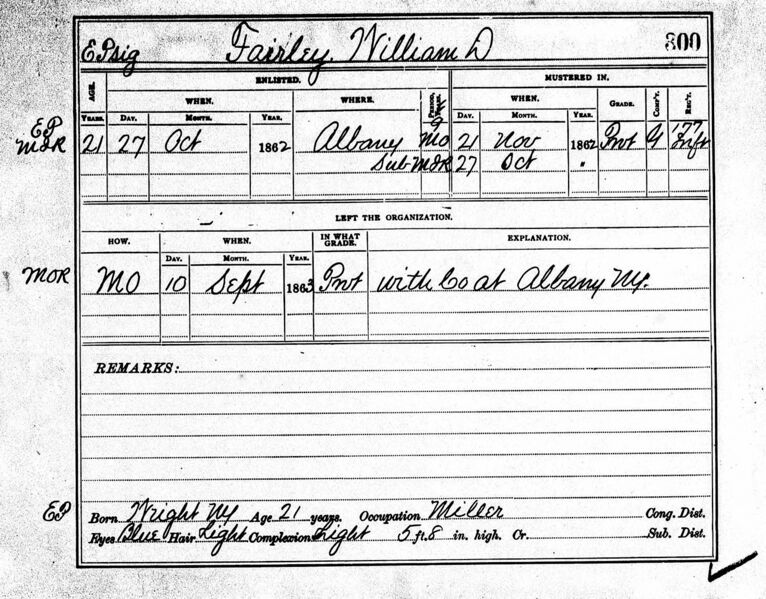 EPsig Fairley, William D 800
ENLISTED. MUSTERED IN.
AGE. WHEN. WHERE. PERIOD, YEARS. WHEN. GRADE. COMP'Y. REG'T.
YEARS. DAY. MONTH. YEAR. DAY. MONTH. YEAR.
EP 21 27 Oct 1862 Albany 9 Mo 21 Nov 1862 Pvt G 177 Inft
MOR Sub MOR 27 Oct "
LEFT THE ORGANIZATION.
HOW. WHEN. IN WHAT GRADE. EXPLANATION.
DAY. MONTH. YEAR.
MOR MO 10 Sept 1863 Pvt with Co at Albany NY.
REMARKS:
EP Born Wright NY Age 21 years. Occupation Miller Cong. Dist.
Eyes Blue Hair Light Complexion Light 5 ft. 8 in. high. Cr. Sub. Dist.